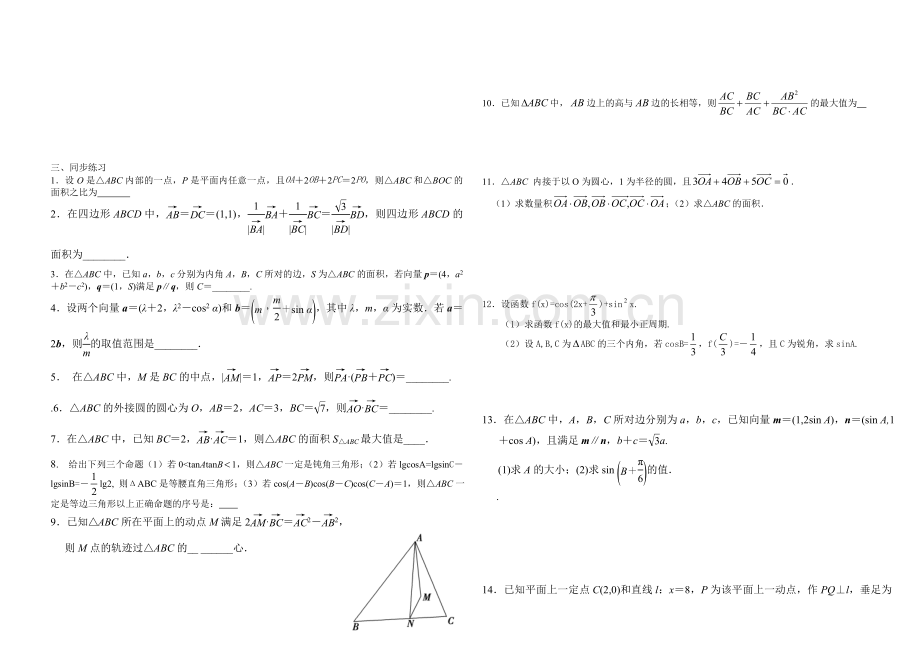 三、同步练习
1. 设 O 是△ABC 内部的一点，P 是平面内任意一点，且OA+2OB+2PC=2PO，则△ABC 和△BOC 的
面积之比为______
2．在四边形 ABCD 中，$\overrightarrow{AB}=\overrightarrow{DC}$=(1,1)，$\frac{1}{|\overrightarrow{BA}|}\overrightarrow{BA}+\frac{1}{|\overrightarrow{BC}|}\overrightarrow{BC}=\frac{\sqrt{3}}{|\overrightarrow{BD}|}\overrightarrow{BD}$，则四边形 ABCD 的
面积为________．
3．在△ABC 中，已知 a，b，c 分别为内角 A，B，C 所对的边，S 为△ABC 的面积，若向量 p=(4，a²
＋b²－c²)，q=(1，S)满足 p∥q，则 C=________．
4．设两个向量 a＝(λ＋2，λ²－cos² α)和 b＝$\left(m，\frac{m}{2}+\sin α\right)$，其中 λ，m，α 为实数．若 a＝
2b，则$\frac{λ}{m}$的取值范围是________．
5． 在△ABC 中，M 是 BC 的中点，|$\overrightarrow{AM}$|＝1，$\overrightarrow{AP}$＝2$\overrightarrow{PM}$，则$\overrightarrow{PA}$·($\overrightarrow{PB}$＋$\overrightarrow{PC}$)＝________.
.6．△ABC 的外接圆的圆心为 O，AB＝2，AC＝3，BC＝$\sqrt{7}$，则$\overrightarrow{AO}$·$\overrightarrow{BC}$＝________.
7．在△ABC 中，已知 BC＝2，$\overrightarrow{AB}$·$\overrightarrow{AC}$＝1，则△ABC 的面积 S△ABC 最大值是____．
8． 给出下列三个命题（1）若 0<tanAtanB＜1，则△ABC 一定是钝角三角形；（2）若 lgcosA=lgsinC－
lgsinB=－$\frac{1}{2}$lg2, 则ΔABC 是等腰直角三角形；（3）若 cos(A－B)cos(B－C)cos(C－A)＝1，则△ABC 一
定是等边三角形以上正确命题的序号是：____
9．已知△ABC 所在平面上的动点 M 满足 2$\overrightarrow{AM}$·$\overrightarrow{BC}$＝$\overrightarrow{AC}$²－$\overrightarrow{AB}$²，
则 M 点的轨迹过△ABC 的__ ______心．
A
M
B
N
C
10．已知 ΔABC 中， AB 边上的高与 AB 边的长相等，则$\frac{AC}{BC}+\frac{BC}{AC}+\frac{AB^2}{BC·AC}$的最大值为__
11．△ABC 内接于以 O 为圆心，1 为半径的圆，且 $3\overrightarrow{OA}+4\overrightarrow{OB}+5\overrightarrow{OC}=\vec{0}$．
（1）求数量积$\overrightarrow{OA}·\overrightarrow{OB},\overrightarrow{OB}·\overrightarrow{OC},\overrightarrow{OC}·\overrightarrow{OA}$；（2）求△ABC 的面积．
12．设函数 f(x)=cos(2x+$\frac{π}{3}$)+sin²x.
（1）求函数 f(x)的最大值和最小正周期.
（2）设 A,B,C 为ΔABC 的三个内角，若 cosB=$\frac{1}{3}$，f($\frac{C}{3}$)=－$\frac{1}{4}$，且 C 为锐角，求 sinA.
13．在△ABC 中，A，B，C 所对边分别为 a，b，c，已知向量 m＝(1,2sin A)，n＝(sin A,1
＋cos A)，且满足 m∥n，b＋c＝$\sqrt{3}$a.
(1)求 A 的大小；(2)求 sin$\left(B+\frac{π}{6}\right)$的值．
.
14．已知平面上一定点 C(2,0)和直线 l：x＝8，P 为该平面上一动点，作 PQ⊥l，垂足为
www.zixin.com.cn